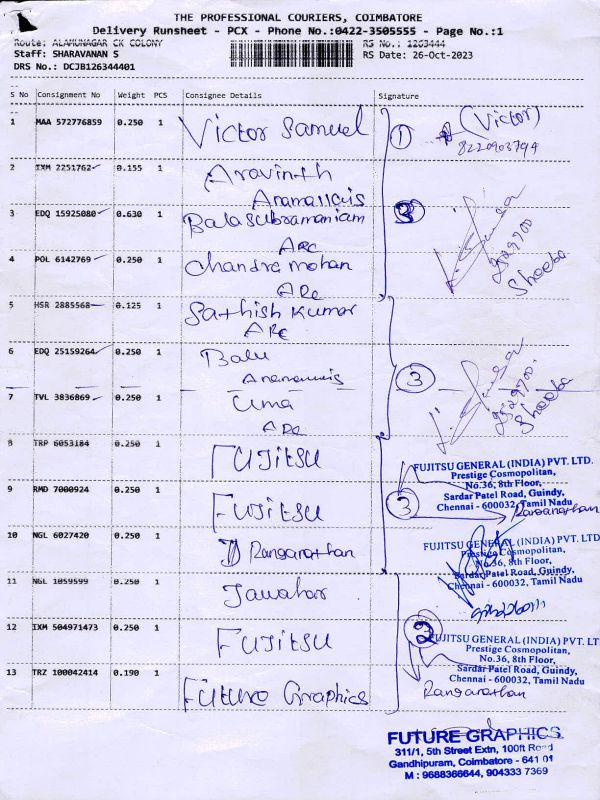 THE PROFESSIONAL COURIERS, COIMBATORE
Delivery Runsheet - PCX - Phone No.:0422-3505555 - Page No.:1
Route: ALAMUNAGAR CK COLONY
RS No.: 1263444
Staff: SHARAVANAN S
RS Date: 26-Oct-2023
DRS No.: DCJB126344401
S No Consignment No Weight PCS Consignee Details Signature
1 MAA 572776859 0.250 1 Victor Samuel 1 (Victor)
8220903794
2 IXM 2251762 0.155 1 Aravinth
3 EDQ 15925080 0.630 1 Balasubramaniam 3
ARC
4 POL 6142769 0.250 1 Chandra mohan
ARC
Sheeba
5 HSR 2885568 0.125 1 Sathish Kumar
ARC
6 EDQ 25159264 0.250 1 Balu 3
7 TVL 3836869 0.250 1 Uma
ARC
Sheeba
8 TRP 6053184 0.250 1 FUJitSU
FUJITSU GENERAL (INDIA) PVT. LTD.
Prestige Cosmopolitan,
No.36, 8th Floor,
Sardar Patel Road, Guindy,
Chennai - 600032, Tamil Nadu
9 RMD 7000924 0.250 1 FUJitSU 3 Ranganathan
10 NGL 6027420 0.250 1 Ranganathan
FUJITSU GENERAL (INDIA) PVT. LTD
Prestige Cosmopolitan,
No.36, 8th Floor,
Sardar Patel Road, Guindy,
Chennai - 600032, Tamil Nadu
11 NGL 1059599 0.250 1 Jawahar
12 IXM 504971473 0.250 1 FUJitSU 2
FUJITSU GENERAL (INDIA) PVT. LT
Prestige Cosmopolitan,
No.36, 8th Floor,
Sardar Patel Road, Guindy,
Chennai - 600032, Tamil Nadu
13 TRZ 100042414 0.190 1 Future Graphics Ranganathan
FUTURE GRAPHICS
311/1, 5th Street Extn, 100ft Road
Gandhipuram, Coimbatore - 641 01
M : 9688366644, 904333 7369